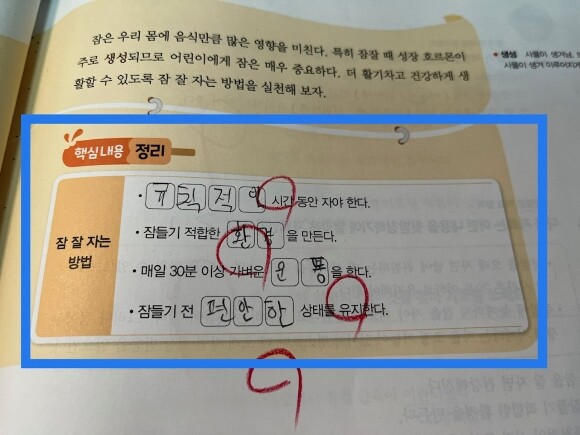 잠은 우리 몸에 음식만큼 많은 영향을 미친다. 특히 잠잘 때 성장 호르몬이
주로 생성되므로 어린이에게 잠은 매우 중요하다. 더 활기차고 건강하게 생
활할 수 있도록 잠 잘 자는 방법을 실천해 보자.
생성 사물이 생겨남.
사물이 생겨 이루어지게
핵심 내용 정리
잠 잘 자는
방법
• 규칙적인 시간 동안 자야 한다.
• 잠들기 적합한 환경을 만든다.
• 매일 30분 이상 가벼운 운동을 한다.
• 잠들기 전 편안한 상태를 유지한다.